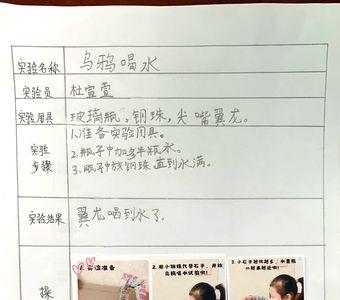 实验名称 乌鸦喝水
实验员 杜萱萱
实验用具 玻璃瓶，钢珠，尖嘴翼龙。
实验步骤
1.准备实验用具。
2.瓶子中加多半瓶水。
3.瓶子中放钢珠直到水满。
实验结果 翼龙喝到水了。
操
1.实验准备
2.用小钢珠代替石子，开始
乌鸦喝水试验啦！
3.小石子越放越多，水面就